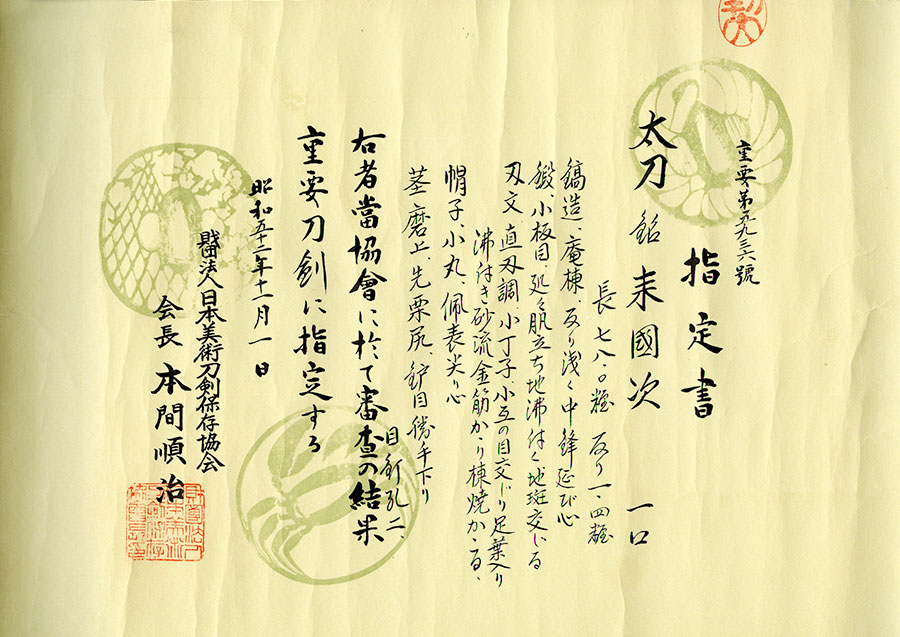 重要第五九三六號
指定書
太刀 銘 来國次 一口
長 七八.〇糎 反り 一.四糎
鎬造、庵棟、反り浅く中鋒延び心
鍛、小板目、処々肌立ち地沸付く地斑交じる
刃文 直刃調 小丁子、小互の目交じり足葉入り
沸付き砂流金筋かゝり棟焼かゝる、
帽子、小丸、佩表尖り心
茎 磨上、先栗尻、鑢目勝手下り
目釘孔二、
右者當協會に於て審査の結果
重要刀剣に指定する
昭和五十二年十一月一日
財団法人日本美術刀剣保存協会
会長 本間順治